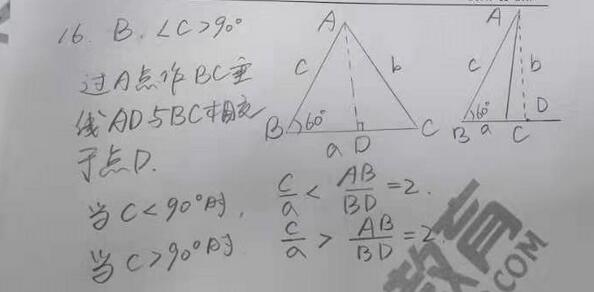 16. B. ∠C>90°
过A点作BC垂
线AD与BC相交
于点D.
当C<90°时, c/a < AB/BD = 2.
当C>90°时 c/a > AB/BD = 2.
A
c
b
B
60°
a
D
C
A
c
b
60°
B
a
C
D
教育
.COM